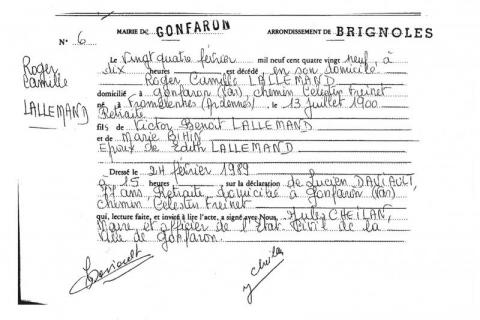 N° 6 MAIRIE DE GONFARON ARRONDISSEMENT DE BRIGNOLES
Roger
Camille
LALLEMAND
Le Vingt quatre février mil neuf cent quatre vingt neuf, à
dix heures est décédé en son domicile
Roger Camille LALLEMAND
domicilié à Gonfaron (Var), chemin Celestin Freinet
né à (Ardennes) le 13 juillet 1900
Retraité
fils de Victor Benoit LALLEMAND
et de Marie BIHIN
Epoux de Edith LALLEMAND
Dressé le 24 février 1989
à 15 heures sur la déclaration de Lucien DAVIAULT,
77 ans Retraité, domicilié à Gonfaron (Var)
chemin Celestin Freinet
qui, lecture faite, et invité à lire l'acte, a signé avec Nous, Jules CHEILAN,
Maire et officier de l'Etat Civil de la
Ville de Gonfaron.
Daviault
J Cheilan